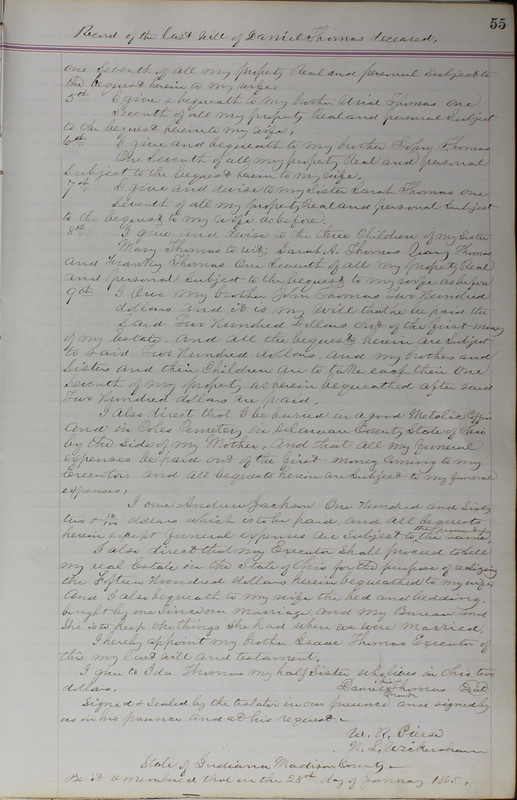 55
Record of the Last Will of Daniel Thomas deceased,
one Seventh of all my property Real and personal Subject to
the bequest herein to my wife
5th I give & bequeath to my brother Thomas one
Seventh of all my property Real and personal Subject
to the bequest herein to my wife,
6th I give and bequeath to my brother John Thomas
One Seventh of all my property Real and personal
Subject to the bequest herein to my wife.
7th I give and devise to my Sister Sarah Thomas one
Seventh of all my property Real and personal Subject
to the bequest to my wife as before.
8th I give and devise to the three Children of my Sister
Mary Thomas to wit; Sarah A. Thomas Thomas
and Thomas One Seventh of all my property Real
and personal Subject to the bequest to my wife as before
9th I Owe my brother John Thomas Two Hundred
dollars and it is my Will that he be paid the
Said Two Hundred dollars out of the first money
of my Estate. And all the bequests herein are Subject
to Said Two Hundred dollars, and my brothers and
Sisters and their Children are to take each their One
Seventh of my property as herein bequeathed after said
Two Hundred dollars are paid.
I Also direct that I be buried in a good Metalic Coffin
And in Coles Cemetery in Delaware County State of Ohio
by the Side of my Mother. And that all my funeral
expenses be paid out of the first money Coming to my
Executor, and all bequests herein are Subject to my funeral
expenses,
I owe Andrew Jackson One Hundred and Sixty
two & dollars which is to be paid, and all bequests
herein except funeral expenses are Subject to the same,
I also direct that my Executor Shall proceed to Sell
my real Estate in the State of Ohio for the purpose of realizing
the Fifteen Hundred dollars herein bequeathed to my wife
And I also bequeath to my wife the bed and bedding,
bought by me Since our Marriage, and my Bureau and
She is to keep the things She had when we were Married,
I hereby appoint my brother Isaac Thomas Executor of
this my last will and testament.
I give to Ida Thomas my half Sister who lives in Ohio two
dollars.
Daniel his mark Thomas Seal
Signed & Sealed by the testator in our presence and signed by
us in his presence and at his request -
W. R. Pierse
State of Indiana Madison County -
Be it remembered that on the 28th day of January 1865,